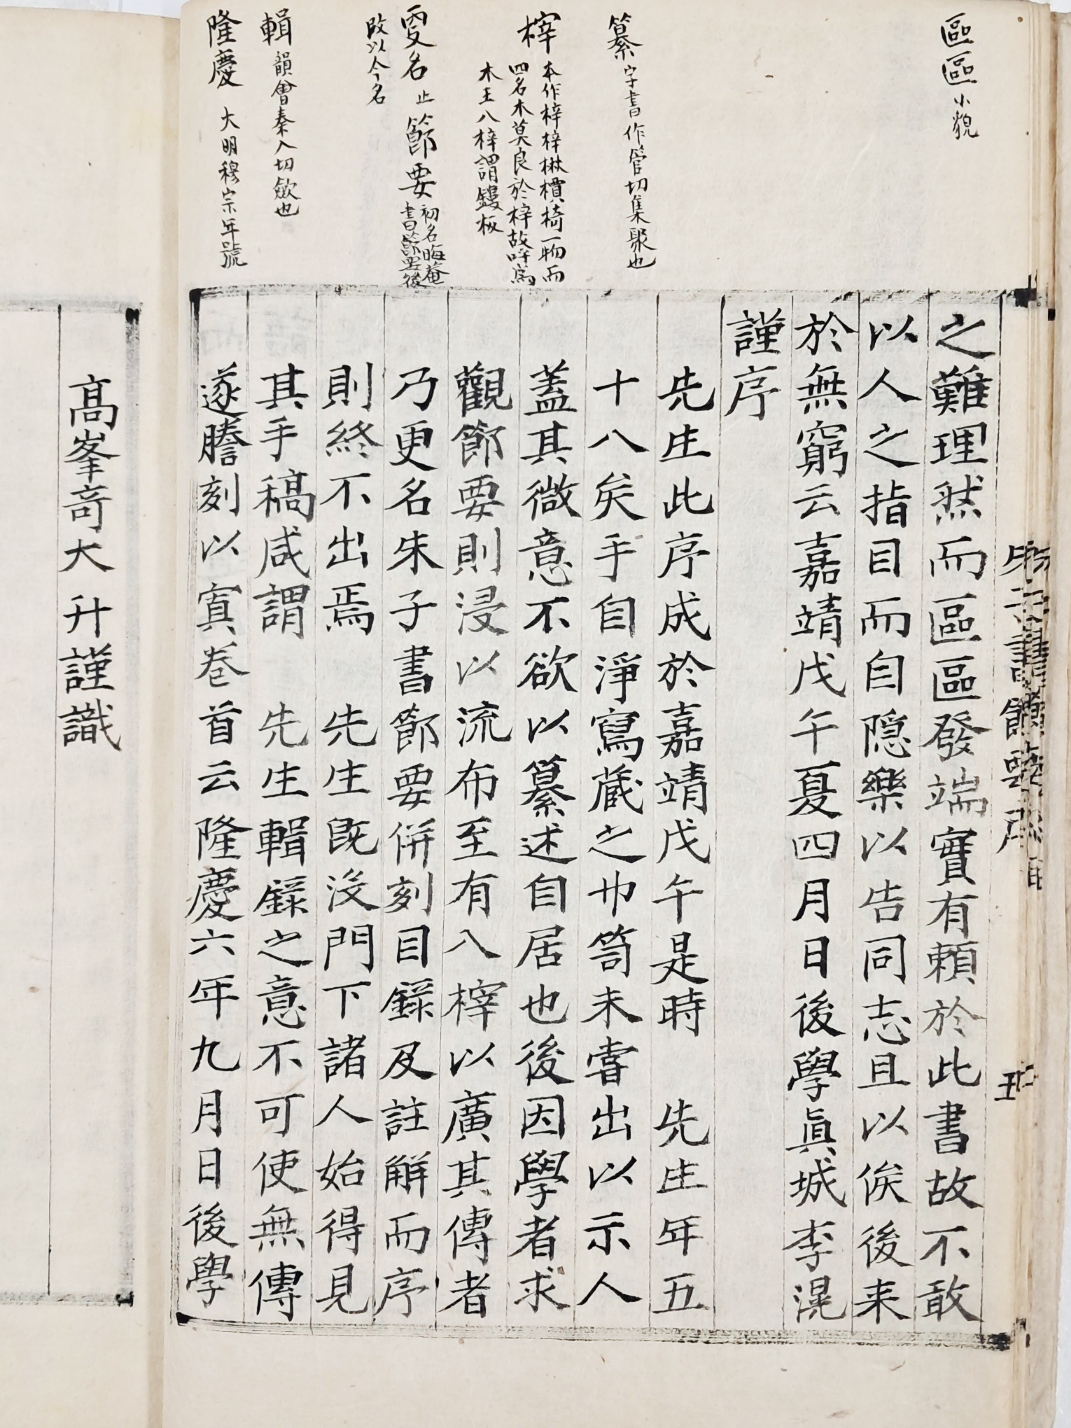 區區 小貌
纂 字書作管切集聚也
榟 本作梓梓楸檟椅一物而
四名木莫良於梓故呼爲
木王八梓謂鏤板
更名 止 節要 初名晦菴
書節要後
改以今名
輯 韻會秦入切斂也
隆慶 大明穆宗年號
朱子書節要序
五
之難理然而區區發端實有賴於此書故不敢
以人之指目而自隠樂以告同志且以俟後来
於無窮云嘉靖戊午夏四月日後學眞城李滉
謹序
先生此序成於嘉靖戊午是時 先生年五
十八矣手自淨寫藏之巾笥未嘗出以示人
蓋其微意不欲以纂述自居也後因學者求
觀節要則浸以流布至有八榟以廣其傳者
乃更名朱子書節要併刻目錄及註解而序
則終不出焉 先生既沒門下諸人始得見
其手稿咸謂 先生輯錄之意不可使無傳
遂謄刻以寘巻首云隆慶六年九月日後學
高峯奇大升謹識